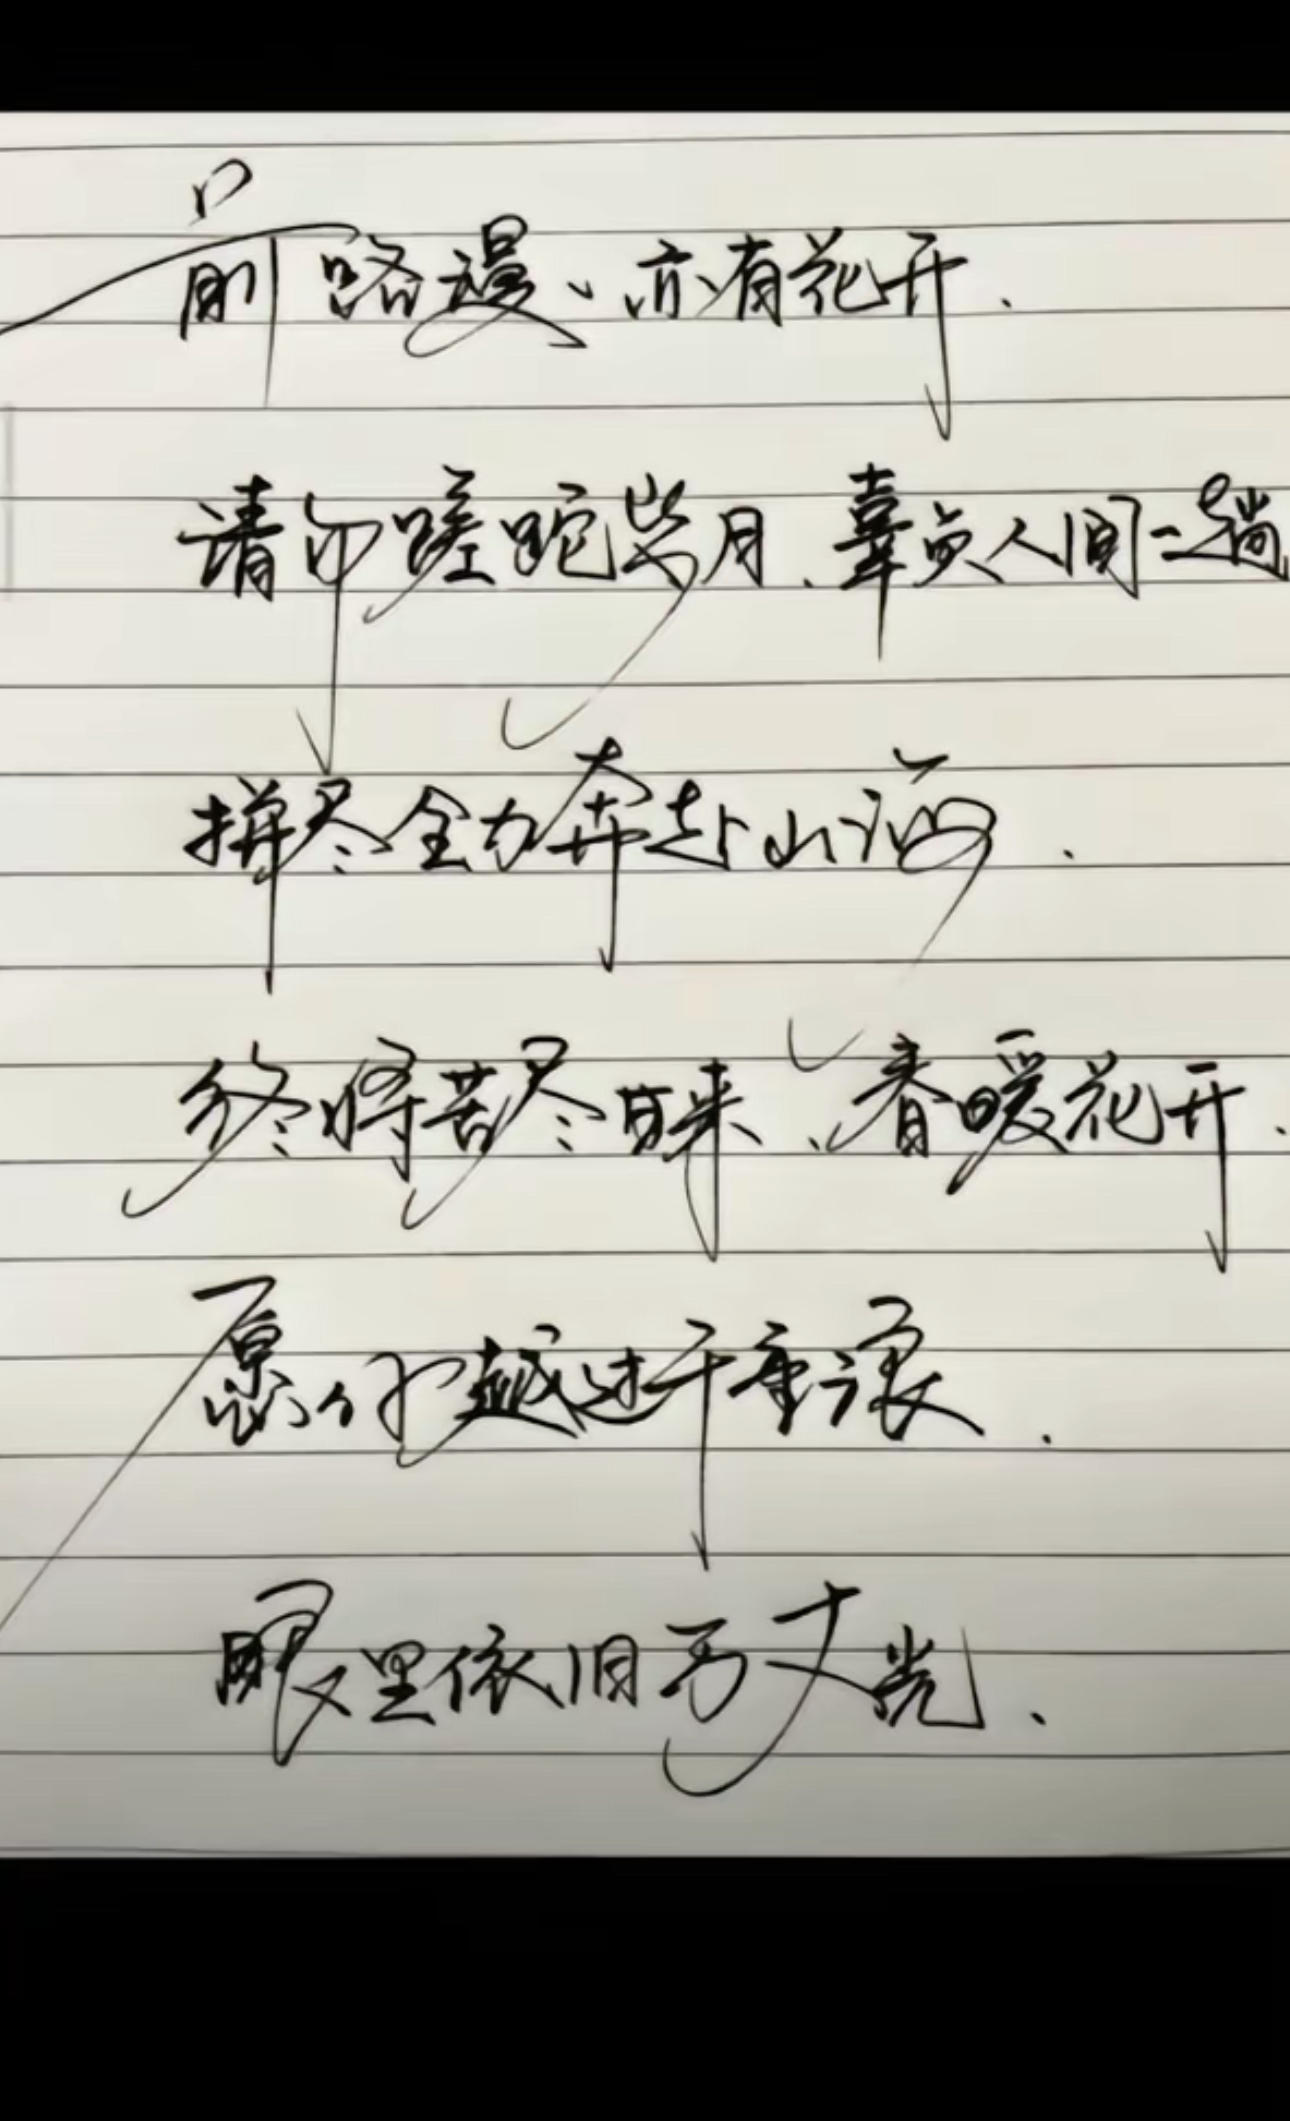 前路漫漫亦有花开.
请勿蹉跎岁月、辜负人间一趟
拼尽全力奔赴山海.
终将苦尽甘来、春暖花开.
愿你越过千重浪.
眼里依旧万丈光、